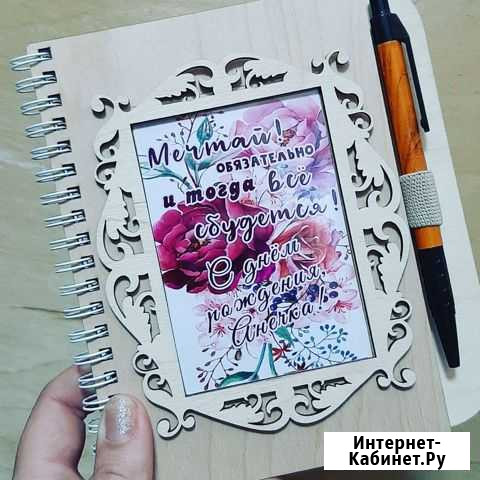 Мечтай!
обязательно
и тогда всё
сбудется!
С днём
рождения,
Анечка!
Интернет-
Кабинет.Ру